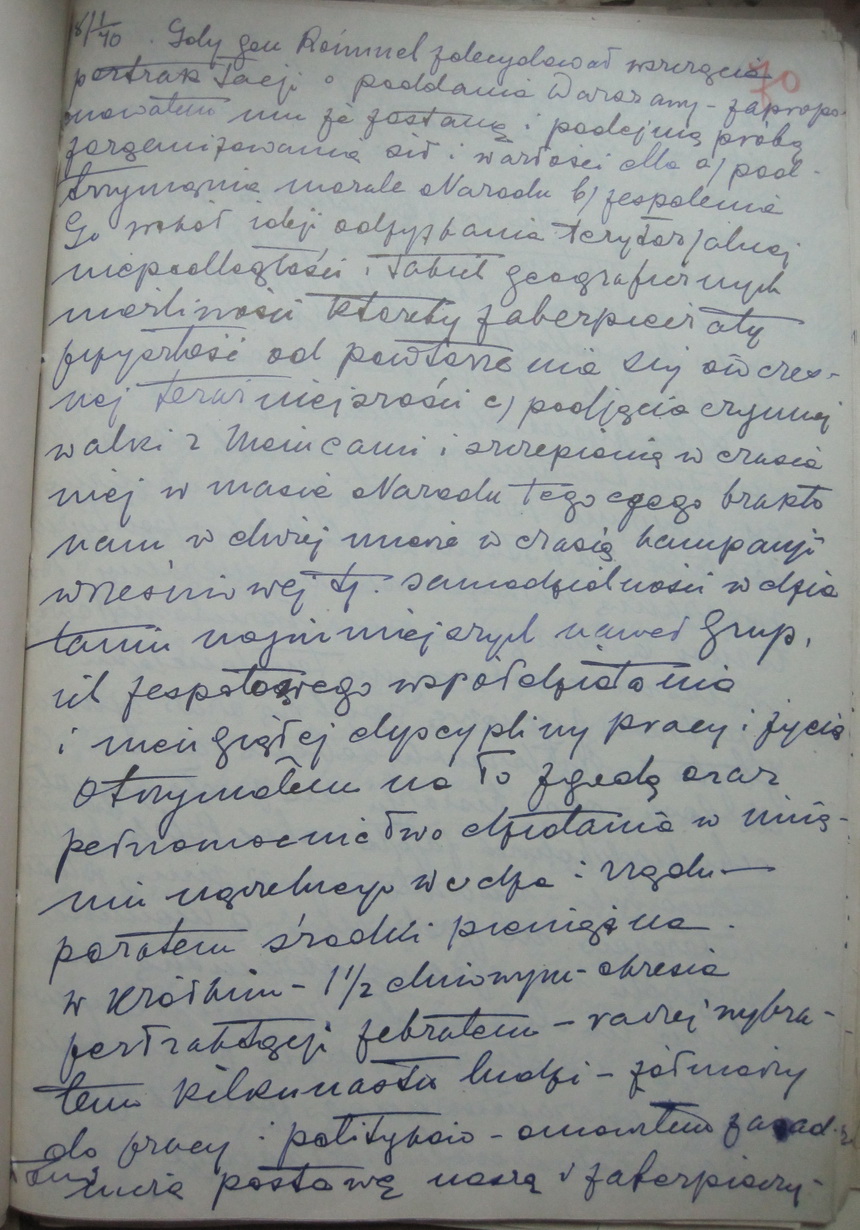 8/I/40. Gdy gen Rómmel zdecydował wszczęcie
pertraktacji o poddanie Warszawy – zapropo-
nowałem mu że zostanę i podejmę próbę
zorganizowania sił i wartości dla a) pod-
trzymania morale Narodu b) zespolenia
Go wokół idei odzyskania terytorjalnej
niepodległości i takich geograficznych
możliwości któreby zabezpieczały
przyszłość od powtórzenia się ówczes-
nej teraźniejszości c) podjęcia czynnej
walki z Niemcami i szczepienia w czasie
niej w masie Narodu tego czego brakło
nam w dużej mierze w czasie kampanji
wrześniowej tj. samodzielności w dzia
łaniu najmniejszych nawet grup,
ich zespołowego współdziałania
i nieugiętej dyscypliny pracy i życia
Otrzymałem na to zgodę oraz
pełnomocnictwo działania w imie-
niu naczelnego wodza i rządu –
pozatem środki pieniężne.
W krótkim – 1 1/2 dniowym – okresie
pertraktacji zebrałem – raczej wybra-
łem kilkunastu ludzi – żołnierzy
do pracy i polityków – omówiłem zasad-
niczą postawę naszą i zabezpieczy-